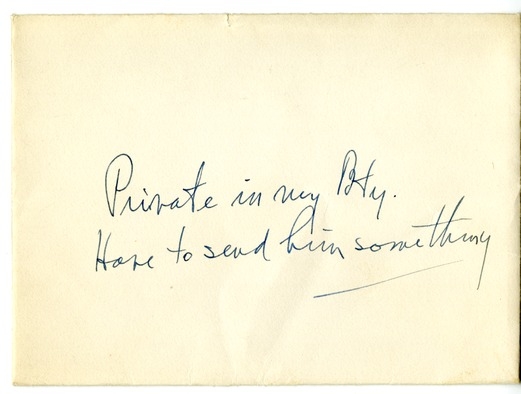 Private in my Bty.
Have to send him something